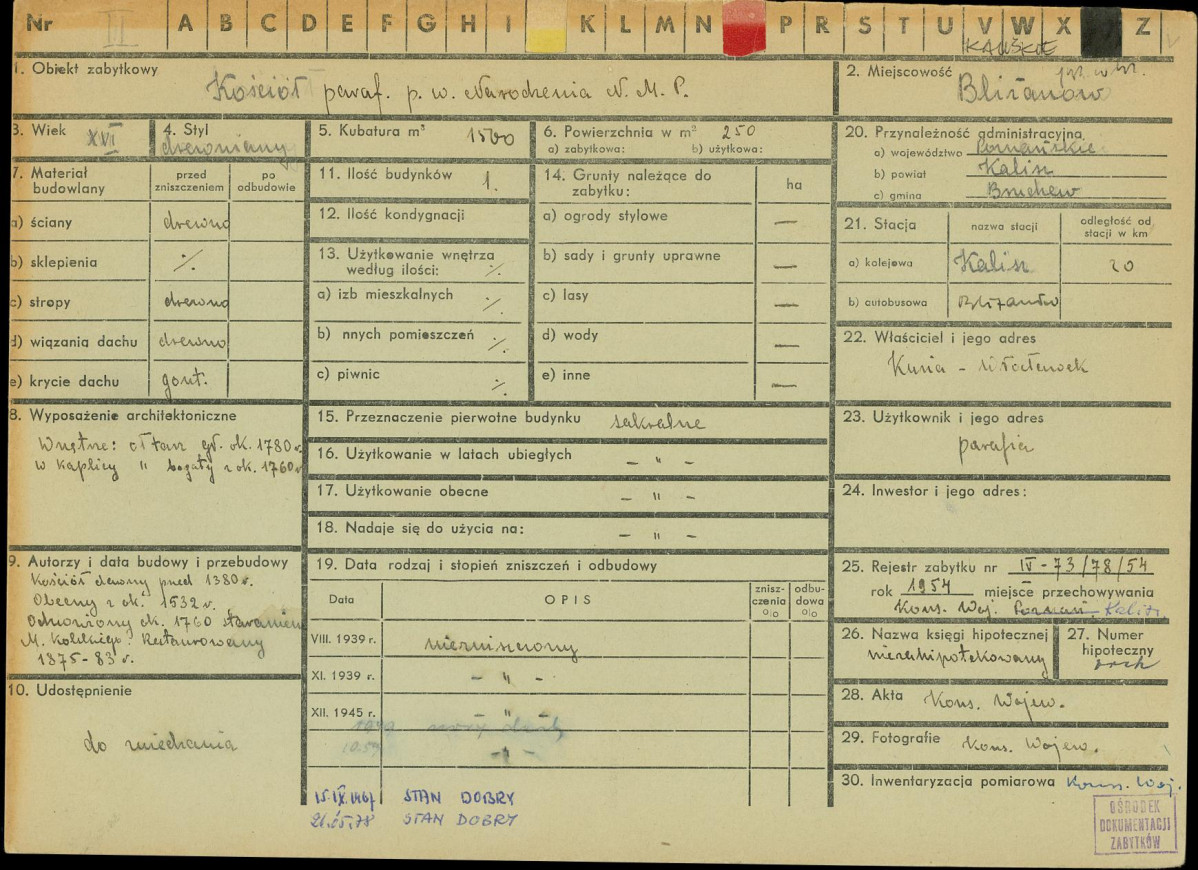 Nr II A B C D E F G H I K L M N P R S T U V W X Z
KALISKIE
1. Obiekt zabytkowy
Kościół paraf. p. w. Narodzenia N. M. P.
2. Miejscowość
Bliżanów
3. Wiek XVI
4. Styl drewniany
5. Kubatura m³ 1500
6. Powierzchnia w m² 250
a) zabytkowa: b) użytkowa:
7. Materiał budowlany
przed zniszczeniem
po odbudowie
a) ściany drewno
b) sklepienia ./.
c) stropy drewno
d) wiązania dachu drewno
e) krycie dachu gont.
8. Wyposażenie architektoniczne
Wnętrze: ołtarz gł. ok. 1780 r.
w kaplicy " bogaty z ok. 1760 r
9. Autorzy i data budowy i przebudowy
Kościół drewny przed 1380 r.
Obecny z ok. 1532 r.
Odnowiony ok. 1760 staraniem
M. Kobilskiego. Restaurowany
1875-83 r.
10. Udostępnienie
do zwiedzania
11. Ilość budynków 1.
12. Ilość kondygnacji
13. Użytkowanie wnętrza
według ilości: ./.
a) izb mieszkalnych ./.
b) nnych pomieszczeń ./.
c) piwnic ./.
14. Grunty należące do
zabytku:
ha
a) ogrody stylowe —
b) sady i grunty uprawne —
c) lasy —
d) wody —
e) inne —
15. Przeznaczenie pierwotne budynku sakralne
16. Użytkowanie w latach ubiegłych — " —
17. Użytkowanie obecne — " —
18. Nadaje się do użycia na: — " —
19. Data rodzaj i stopień zniszczeń i odbudowy
Data
OPIS
znisz-
czenia
o/o
odbu-
dowa
o/o
VIII. 1939 r. niezniszczony
XI. 1939 r. — " —
XII. 1945 r. — " —
1949
10.59 — " —
15.IX.1967 STAN DOBRY
21.05.78 STAN DOBRY
20. Przynależność administracyjna
a) województwo Poznańskie
b) powiat Kalisz
c) gmina Bruchew
21. Stacja
nazwa stacji
odległość od
stacji w km
a) kolejowa Kalisz 20
b) autobusowa Bliżanów
22. Właściciel i jego adres
Kuria - Włocławek
23. Użytkownik i jego adres
parafia
24. Inwestor i jego adres:
25. Rejestr zabytku nr IV-73/78/54
rok 1954 miejsce przechowywania
Kons. Woj. Poznań. Kalisz
26. Nazwa księgi hipotecznej
niezahipotekowany
27. Numer
hipoteczny
28. Akta Kons. Wojew.
29. Fotografie Kons. Wojew.
30. Inwentaryzacja pomiarowa Kons. Woj.
OŚRODEK
DOKUMENTACJI
ZABYTKÓW